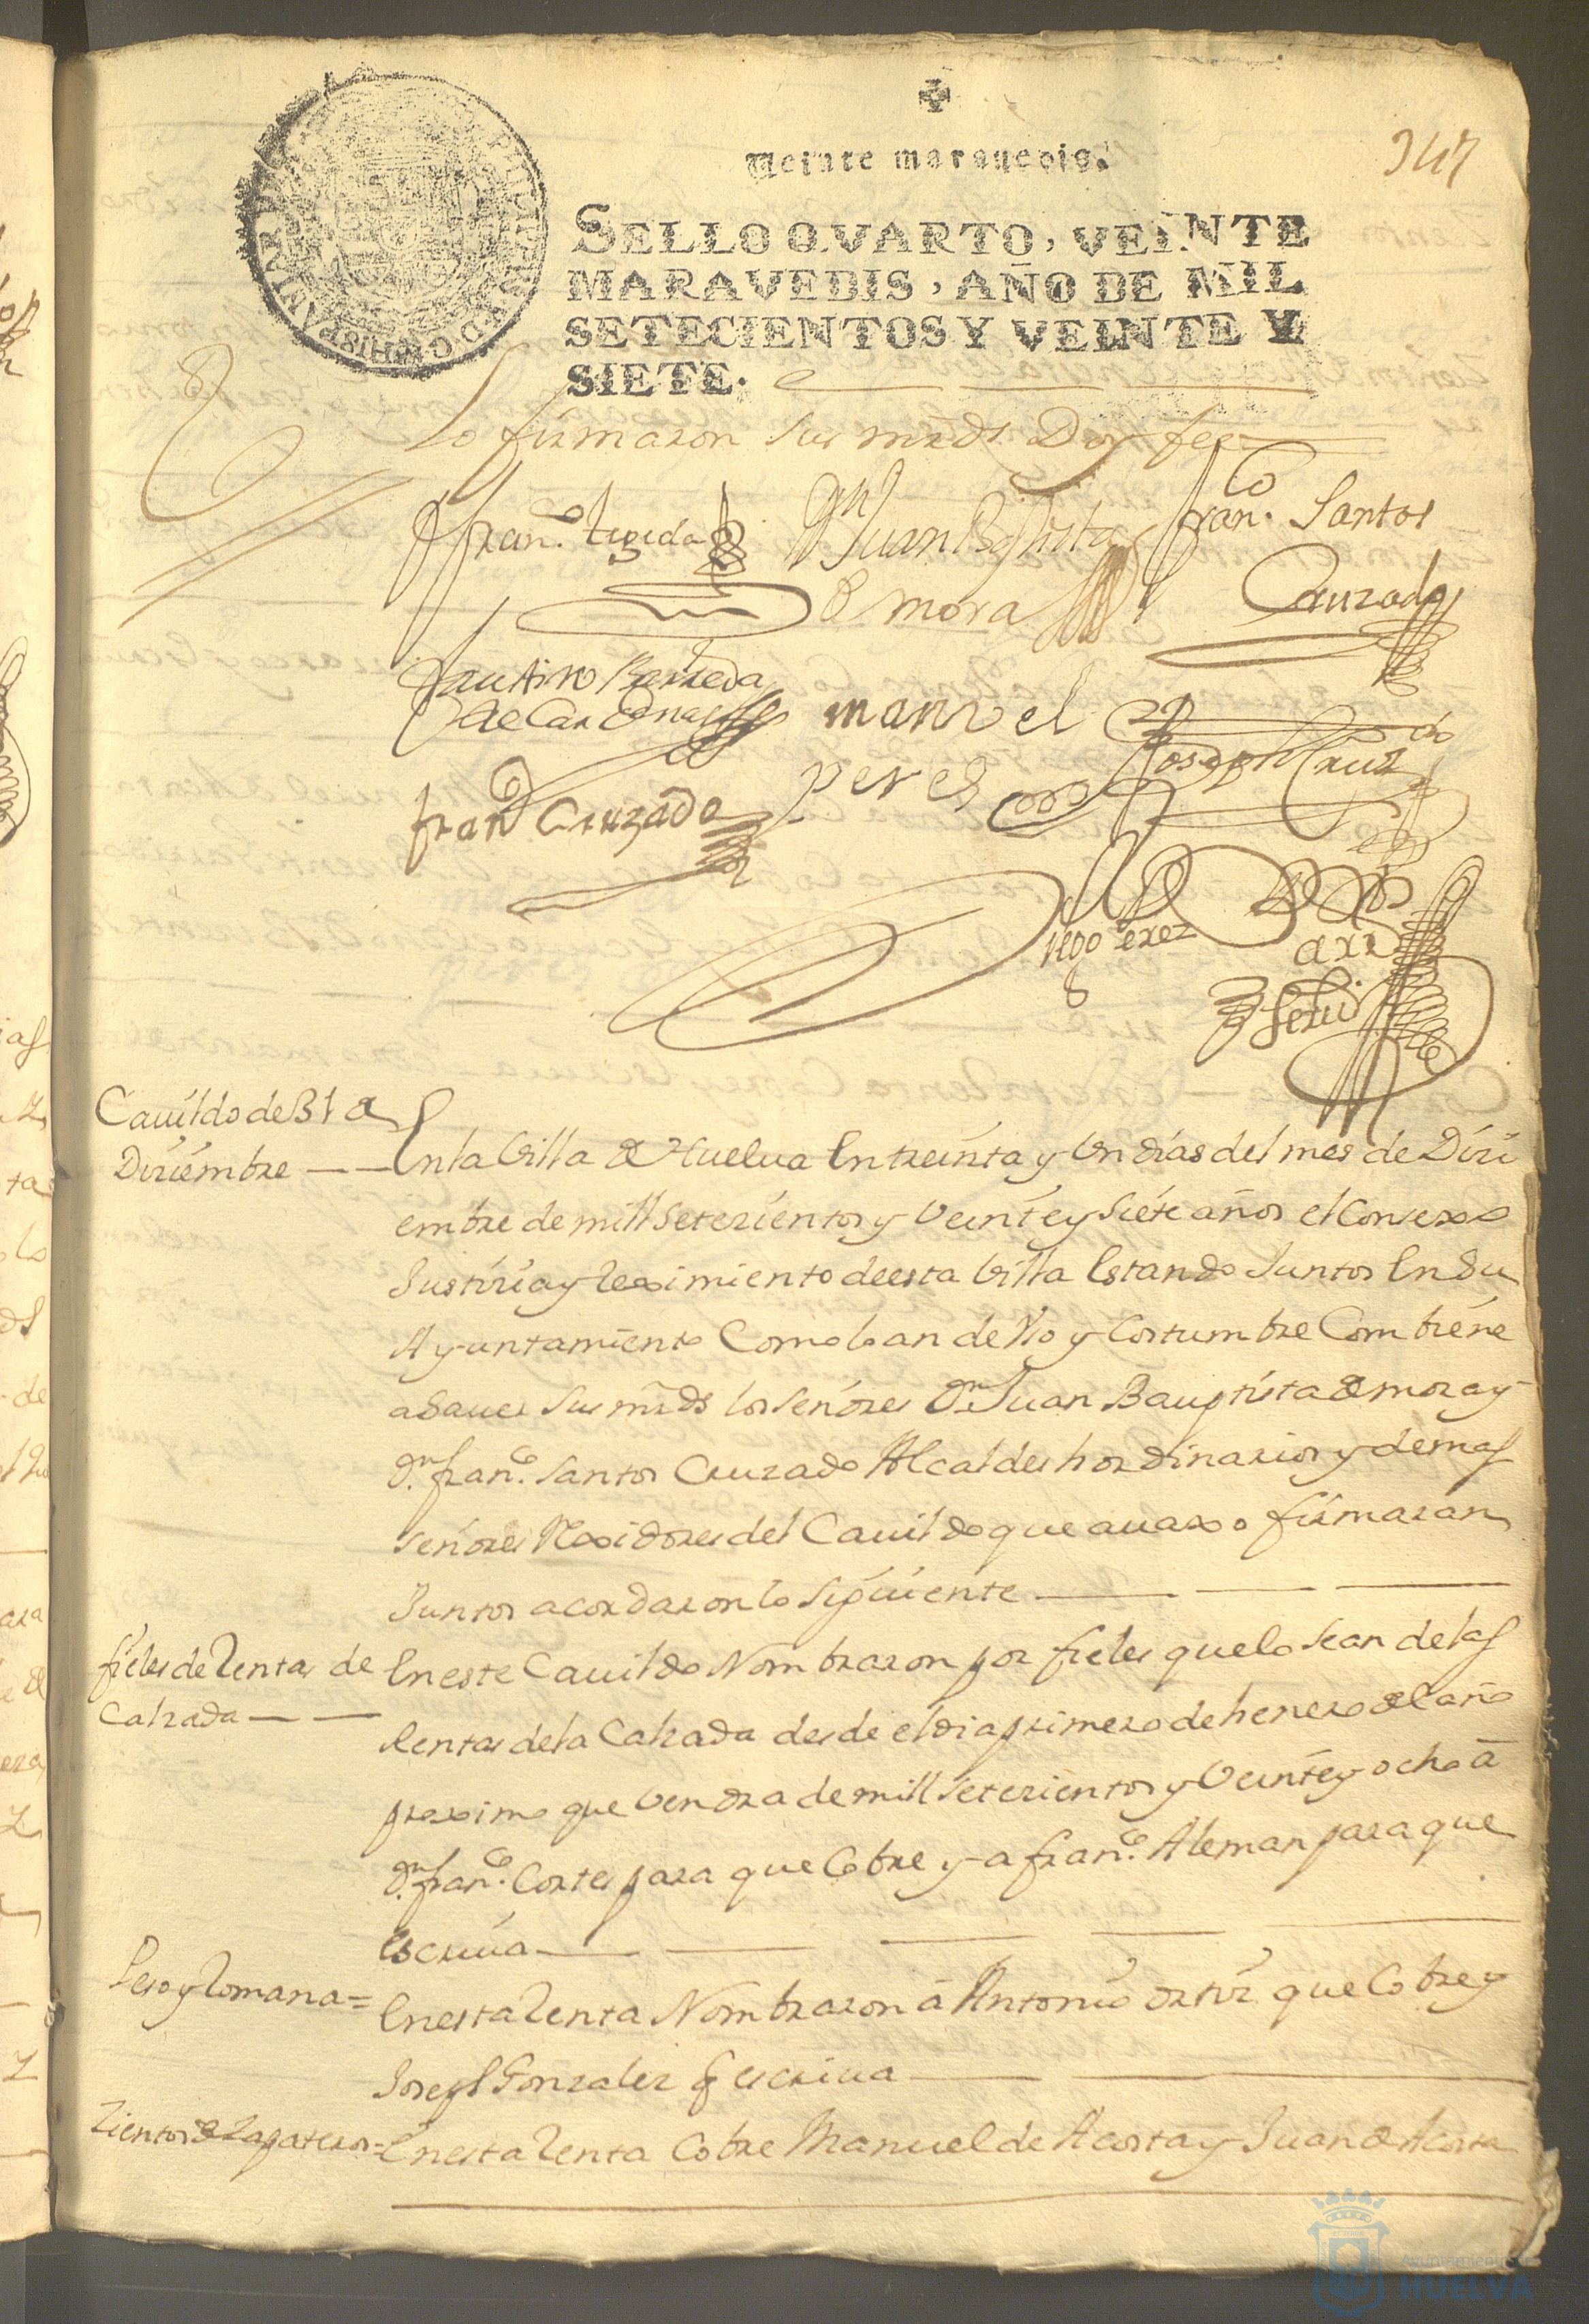 Veinte maravedis.
347
SELLO QVARTO, VEINTE
MARAVEDIS, AÑO DE MIL
SETECIENTOS Y VEINTE Y
SIETE.
Lo firmaron sus mrds Doy fee
Fran.co
Dn Juan Bapptista
Fran.co Santos
de mora
Cruzado
Faustino Barreda
de Cardenas
manuel
perez
Joseph Cruz
Fran.co Cruzado
Diego Perez
Cauildo de 31 de
Diziembre
En la Villa de Huelua En treinta y Un dias del mes de Dizi
embre de mill Setezientos y Veinte y Siete años el Consexo
Justizia y Reximiento de esta Villa Estando Juntos En Su
Ayuntamiento Como lo an de Vso y Costumbre Combiene
a Sauer Sus mrds los Señores Dn Juan Bauptista de mora y
Dn Fran.co Santos Cruzado Alcaldes hordinarios y demas
Señores Rexidores del Cauildo que auaxo firmaran
Juntos acordaron lo Siguiente
fieles de Rentas de
Calzada
En este Cauildo Nombraron por fieles que lo Sean de las
Rentas de la Calzada desde el dia primero de henero del año
proximo que Vendra de mill Setezientos y Veinte y ocho â
Dn Fran.co Cortes para que Cobre y a Fran.co Aleman para que
Escriua
Peso y Romana =
En esta Renta Nombraron â Antonio ortiz que Cobre y
Joseph Gonzalez q escriua
Zientos de Zapateros =
En esta Renta Cobre Manuel de Acosta y Juan de Acosta
Ayuntamiento de
HUELVA